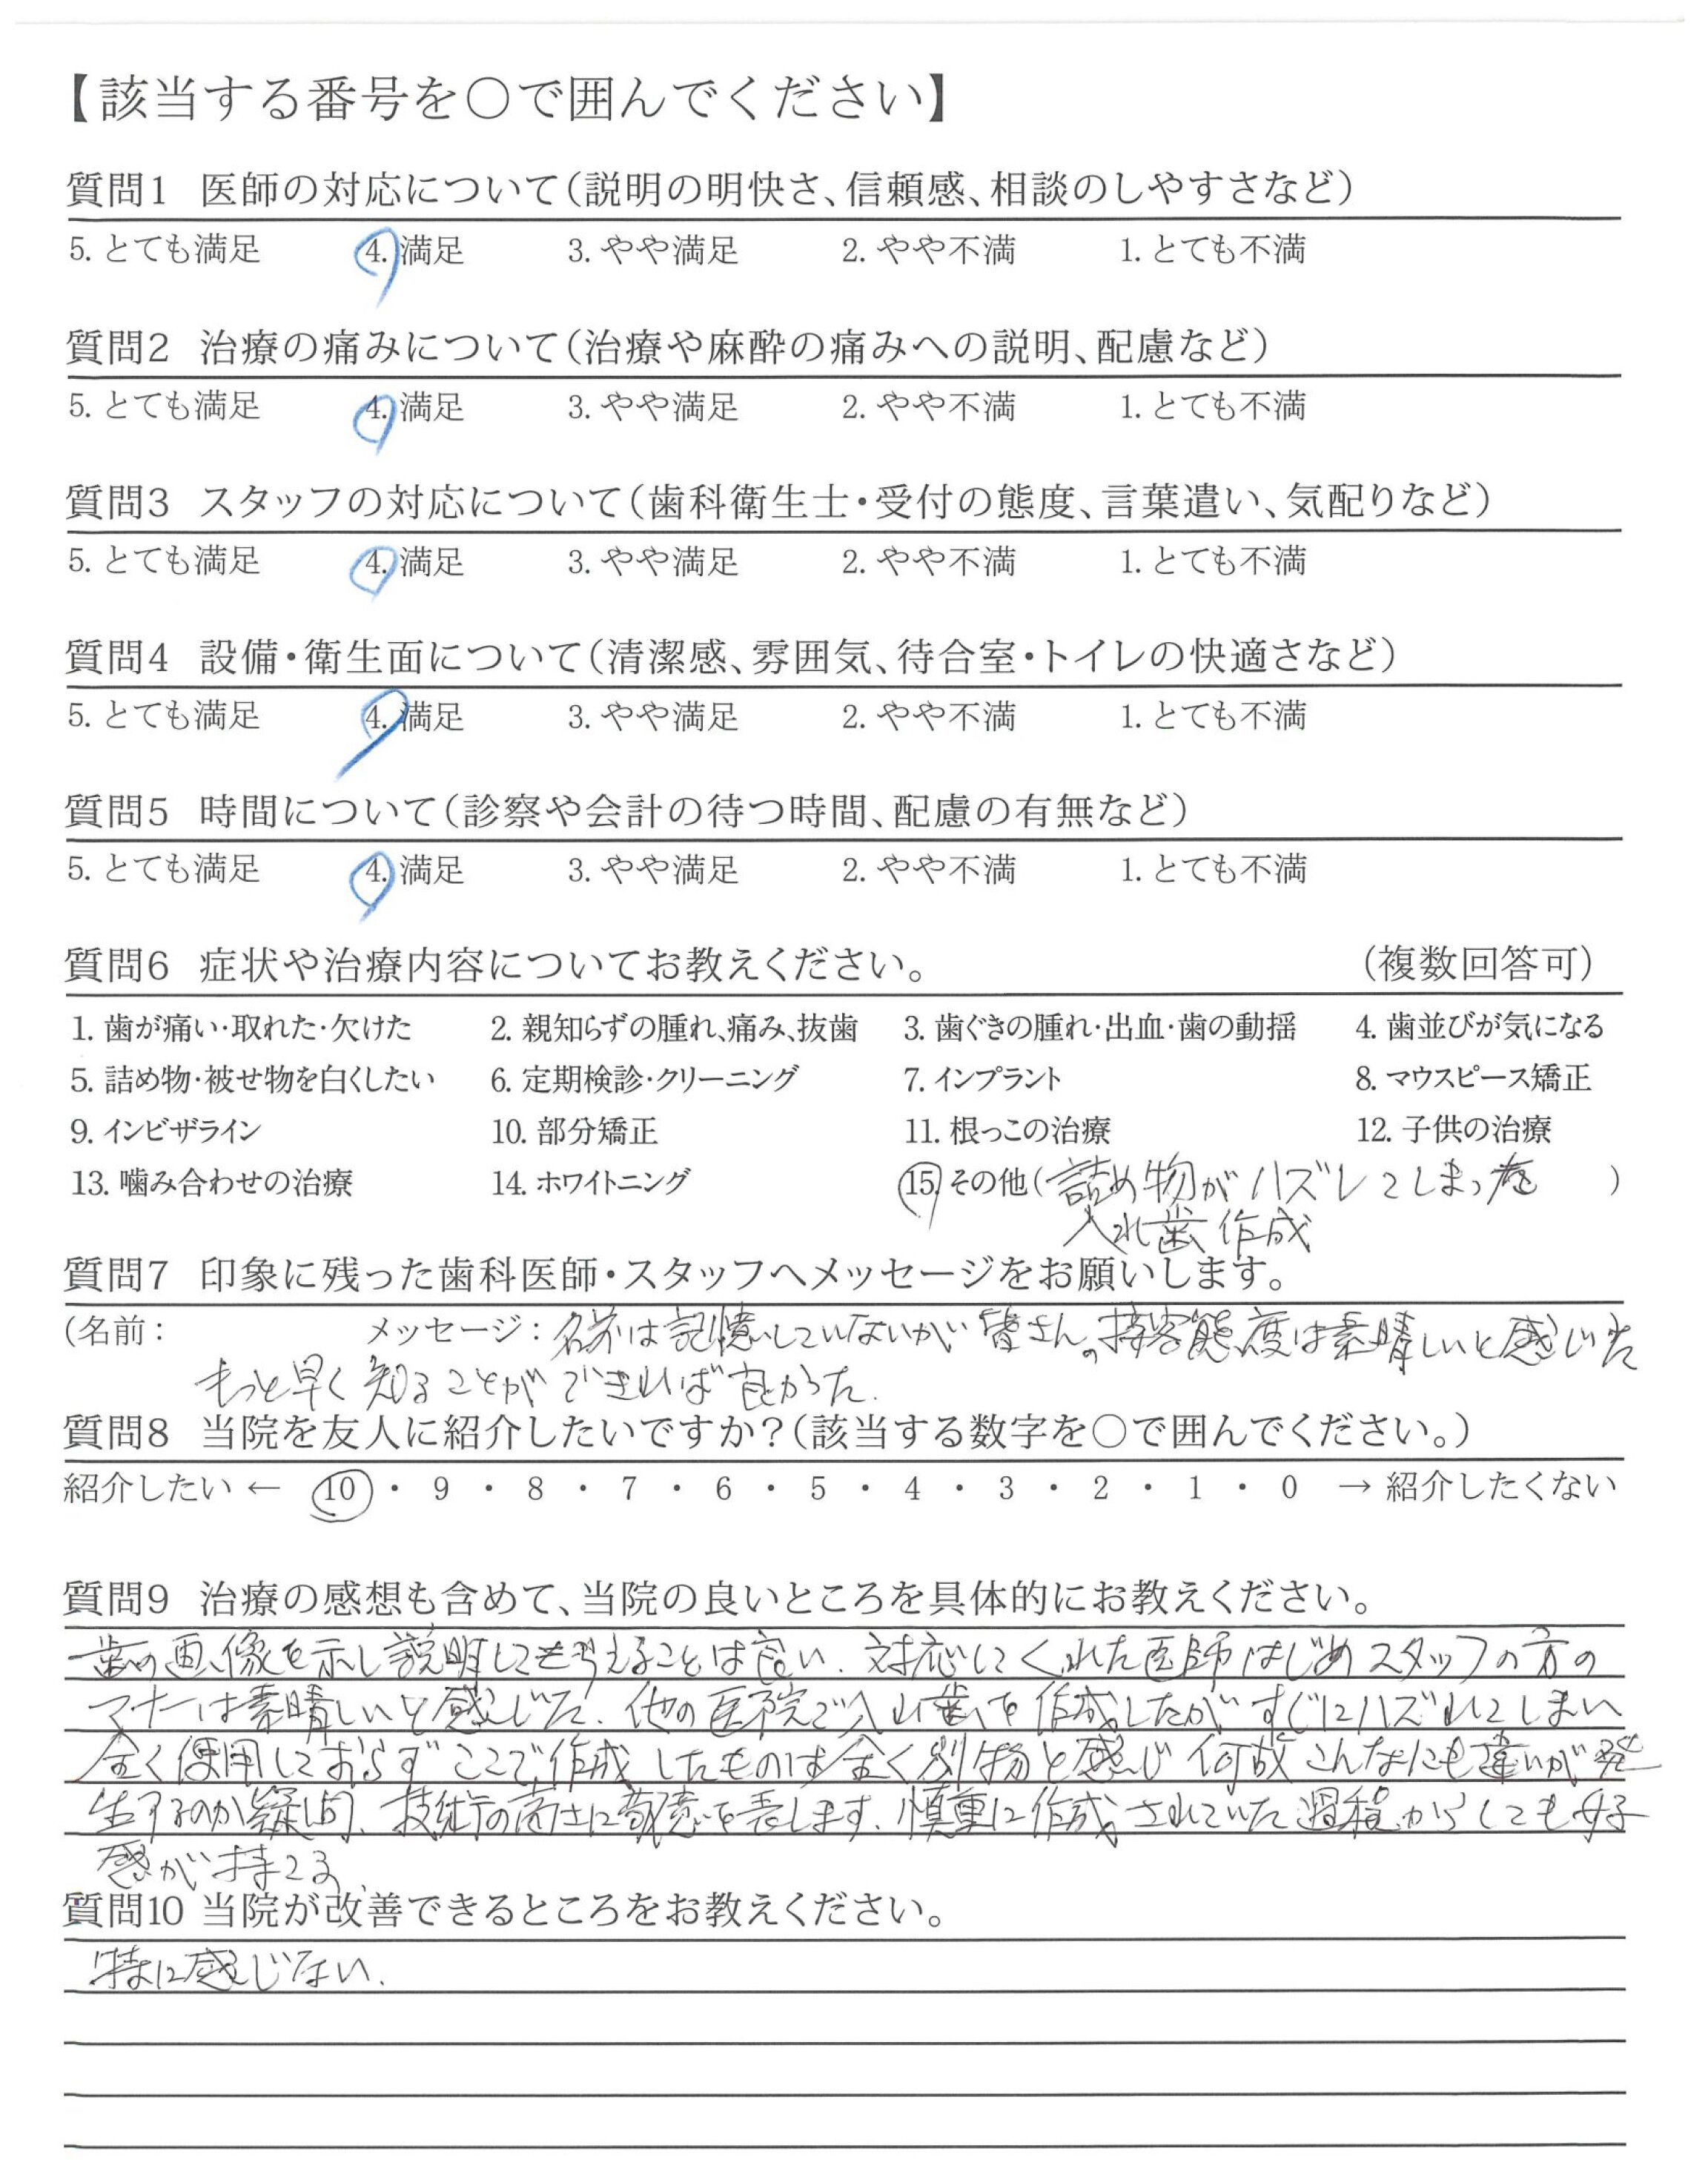 【該当する番号を○で囲んでください】
質問1 医師の対応について（説明の明快さ、信頼感、相談のしやすさなど）
5. とても満足 4. 満足 3. やや満足 2. やや不満 1. とても不満
質問2 治療の痛みについて（治療や麻酔の痛みへの説明、配慮など）
5. とても満足 4. 満足 3. やや満足 2. やや不満 1. とても不満
質問3 スタッフの対応について（歯科衛生士・受付の態度、言葉遣い、気配りなど）
5. とても満足 4. 満足 3. やや満足 2. やや不満 1. とても不満
質問4 設備・衛生面について（清潔感、雰囲気、待合室・トイレの快適さなど）
5. とても満足 4. 満足 3. やや満足 2. やや不満 1. とても不満
質問5 時間について（診察や会計の待つ時間、配慮の有無など）
5. とても満足 4. 満足 3. やや満足 2. やや不満 1. とても不満
質問6 症状や治療内容についてお教えください。 （複数回答可）
1. 歯が痛い・取れた・欠けた 2. 親知らずの腫れ、痛み、抜歯 3. 歯ぐきの腫れ・出血・歯の動揺 4. 歯並びが気になる
5. 詰め物・被せ物を白くしたい 6. 定期検診・クリーニング 7. インプラント 8. マウスピース矯正
9. インビザライン 10. 部分矯正 11. 根っこの治療 12. 子供の治療
13. 噛み合わせの治療 14. ホワイトニング 15. その他（詰め物がハズレてしまった ）
入れ歯作成
質問7 印象に残った歯科医師・スタッフへメッセージをお願いします。
（名前： メッセージ：名前は記憶していないが皆さんの接客態度は素晴しいと感じた
もっと早く知ることができれば良かった.
質問8 当院を友人に紹介したいですか？（該当する数字を○で囲んでください。）
紹介したい ← 10 ・ 9 ・ 8 ・ 7 ・ 6 ・ 5 ・ 4 ・ 3 ・ 2 ・ 1 ・ 0 → 紹介したくない
質問9 治療の感想も含めて、当院の良いところを具体的にお教えください。
歯の画像を示し説明してもらえることは良い. 対応してくれた医師はじめスタッフの方の
マナーは素晴しいと感じた. 他の医院で入れ歯を作成したがすぐにハズれてしまい
全く使用しておらずここで作成したものは全く別物と感じ何故こんなにも違いが発
生するのか疑問. 技術の高さに敬意を表します. 慎重に作成されていた過程からしても好
感が持てる.
質問10 当院が改善できるところをお教えください。
特に感じない.